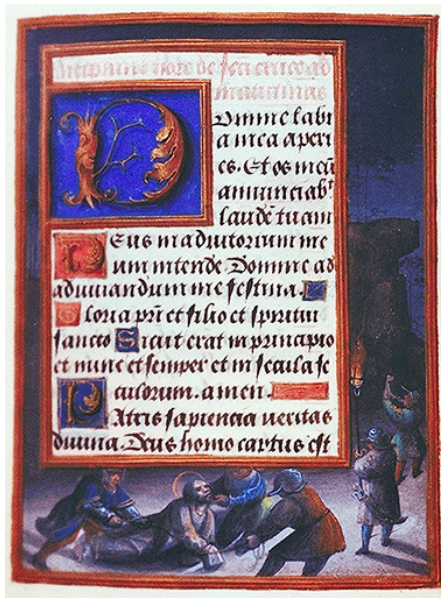 Incipiunt hore de sancta cruce ad
matutinas
Domine labi
a mea aperi
es. Et os meū
annunciabᵗ
laudē tuam
Deus in adiutorium me
um intende. Domine ad
adiuvandum me festina.
Gloria pr̄i et filio et spiritui
sancto Sicut erat in principio
et nunc et semper et in secula se
culorum. amen.
Patris sapiencia veritas
divina. Deus homo captus est